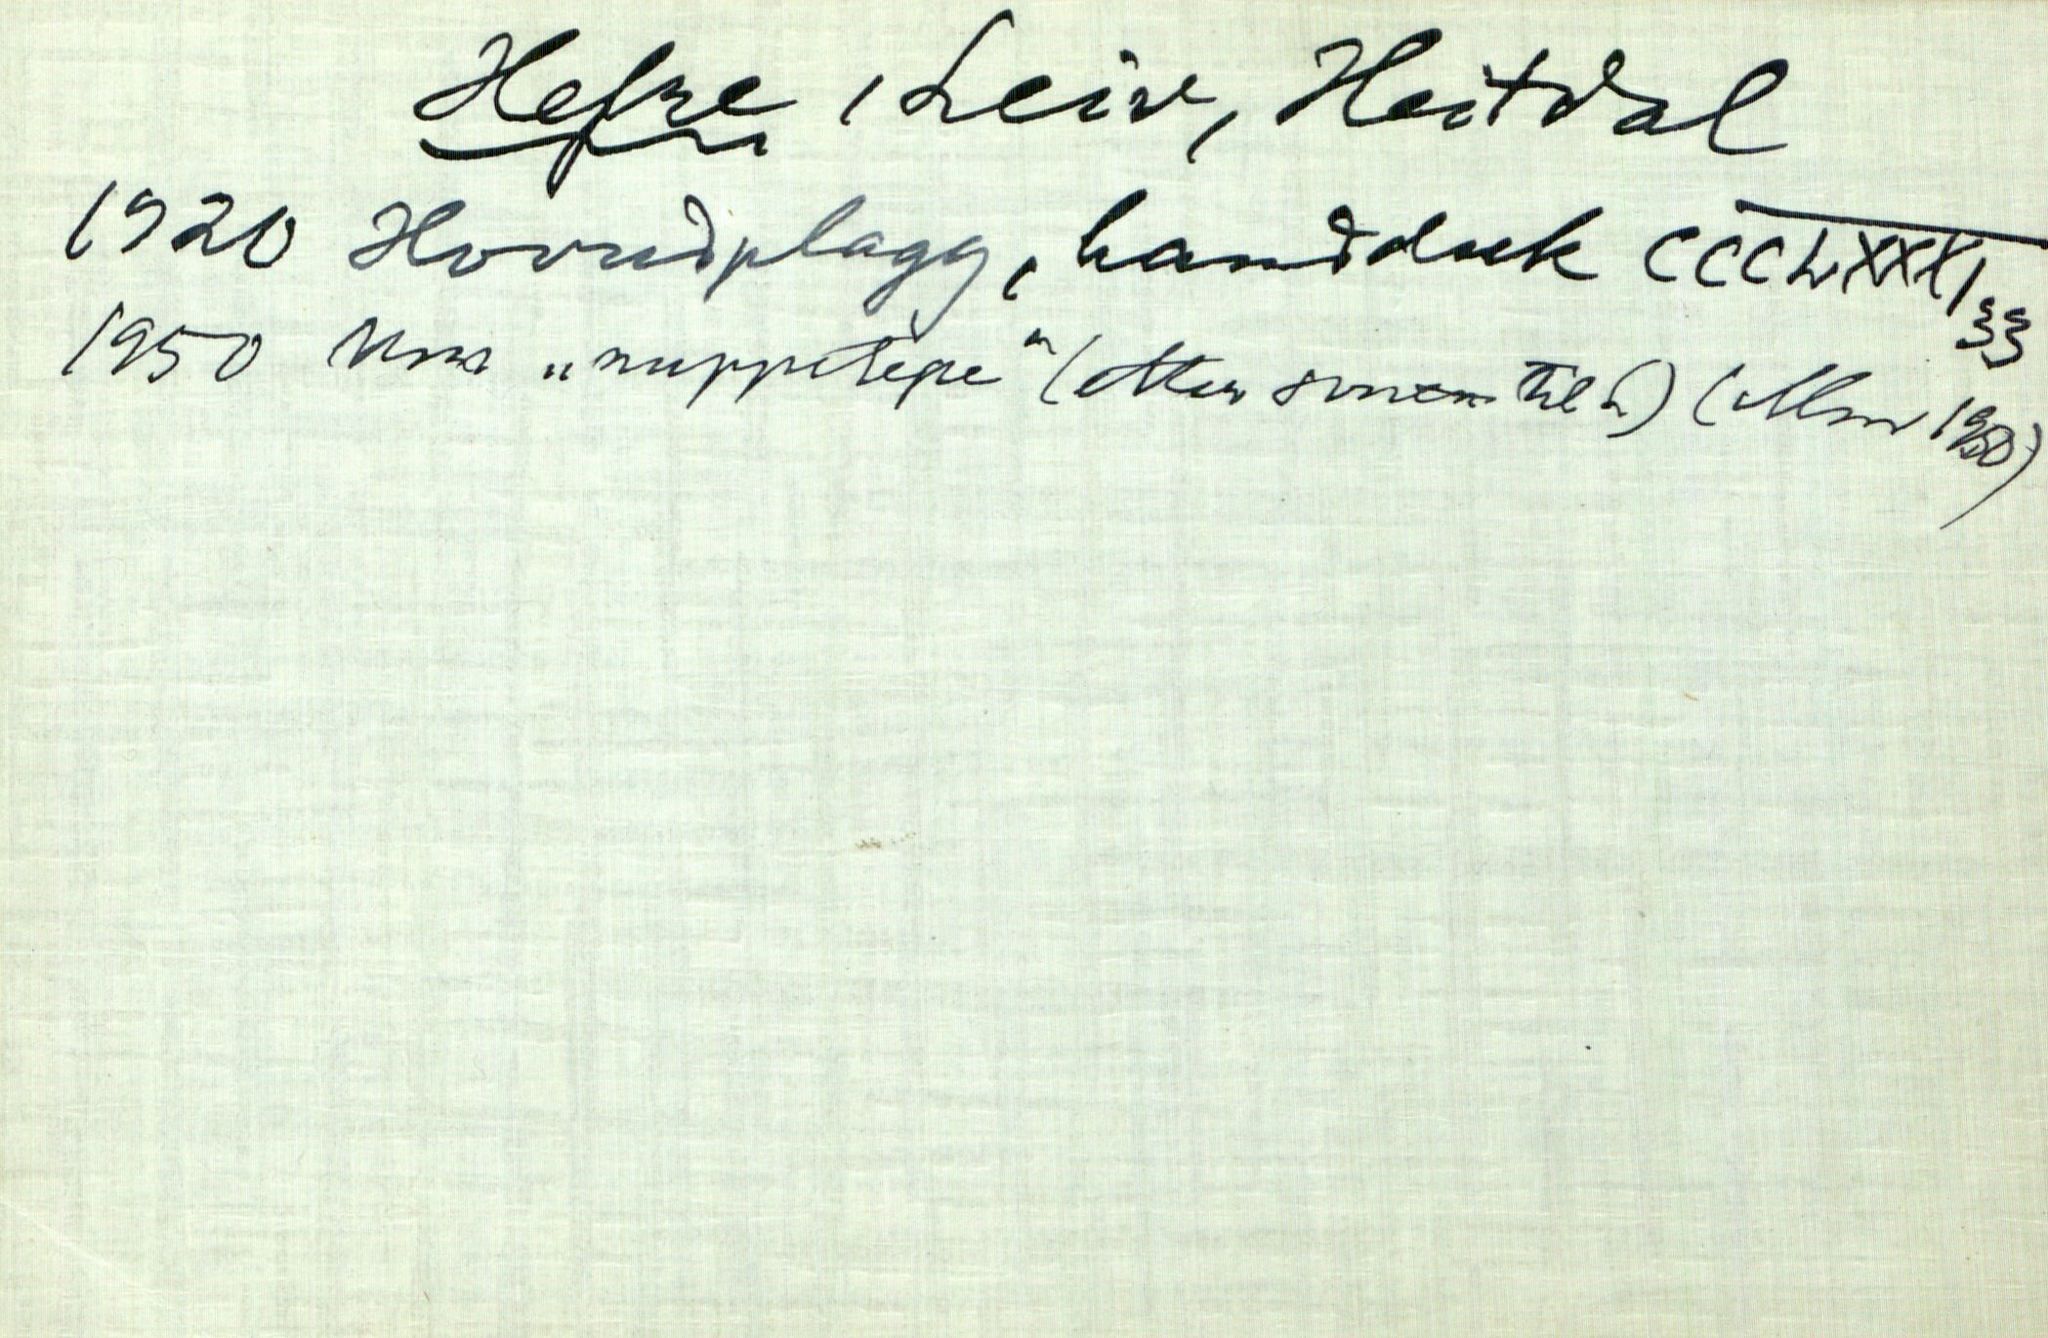 Hefre, Leiv, Heitdal
1920 Hovudplagg, handduk CCCLXXXI, 33
1950 Um „nuppetepe“ ( ) ( 1950)